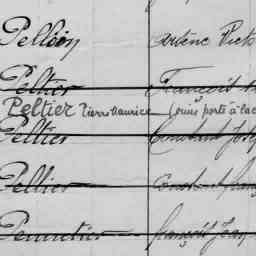 Pellion Arsène Vict
Peltier François
PELTIER Pierre Maurice (omis porté à la
Peltier Constant Jos
Peltier Constant Fran
Pennetier François Jean